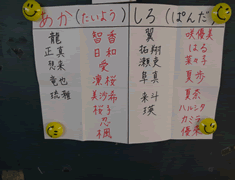 あか(たいよう) しろ(ぱんだ)
龍 智香 翼 咲優美
正真 日和 拓翔 はる
忍来 愛 瀬吏 菜々子
竜也 凛桜 阜真 夏歩
琉雅 美沙希 来斗 夏奈
桜子 瑛 ハルシタ
忍 カミラ
楓 優來